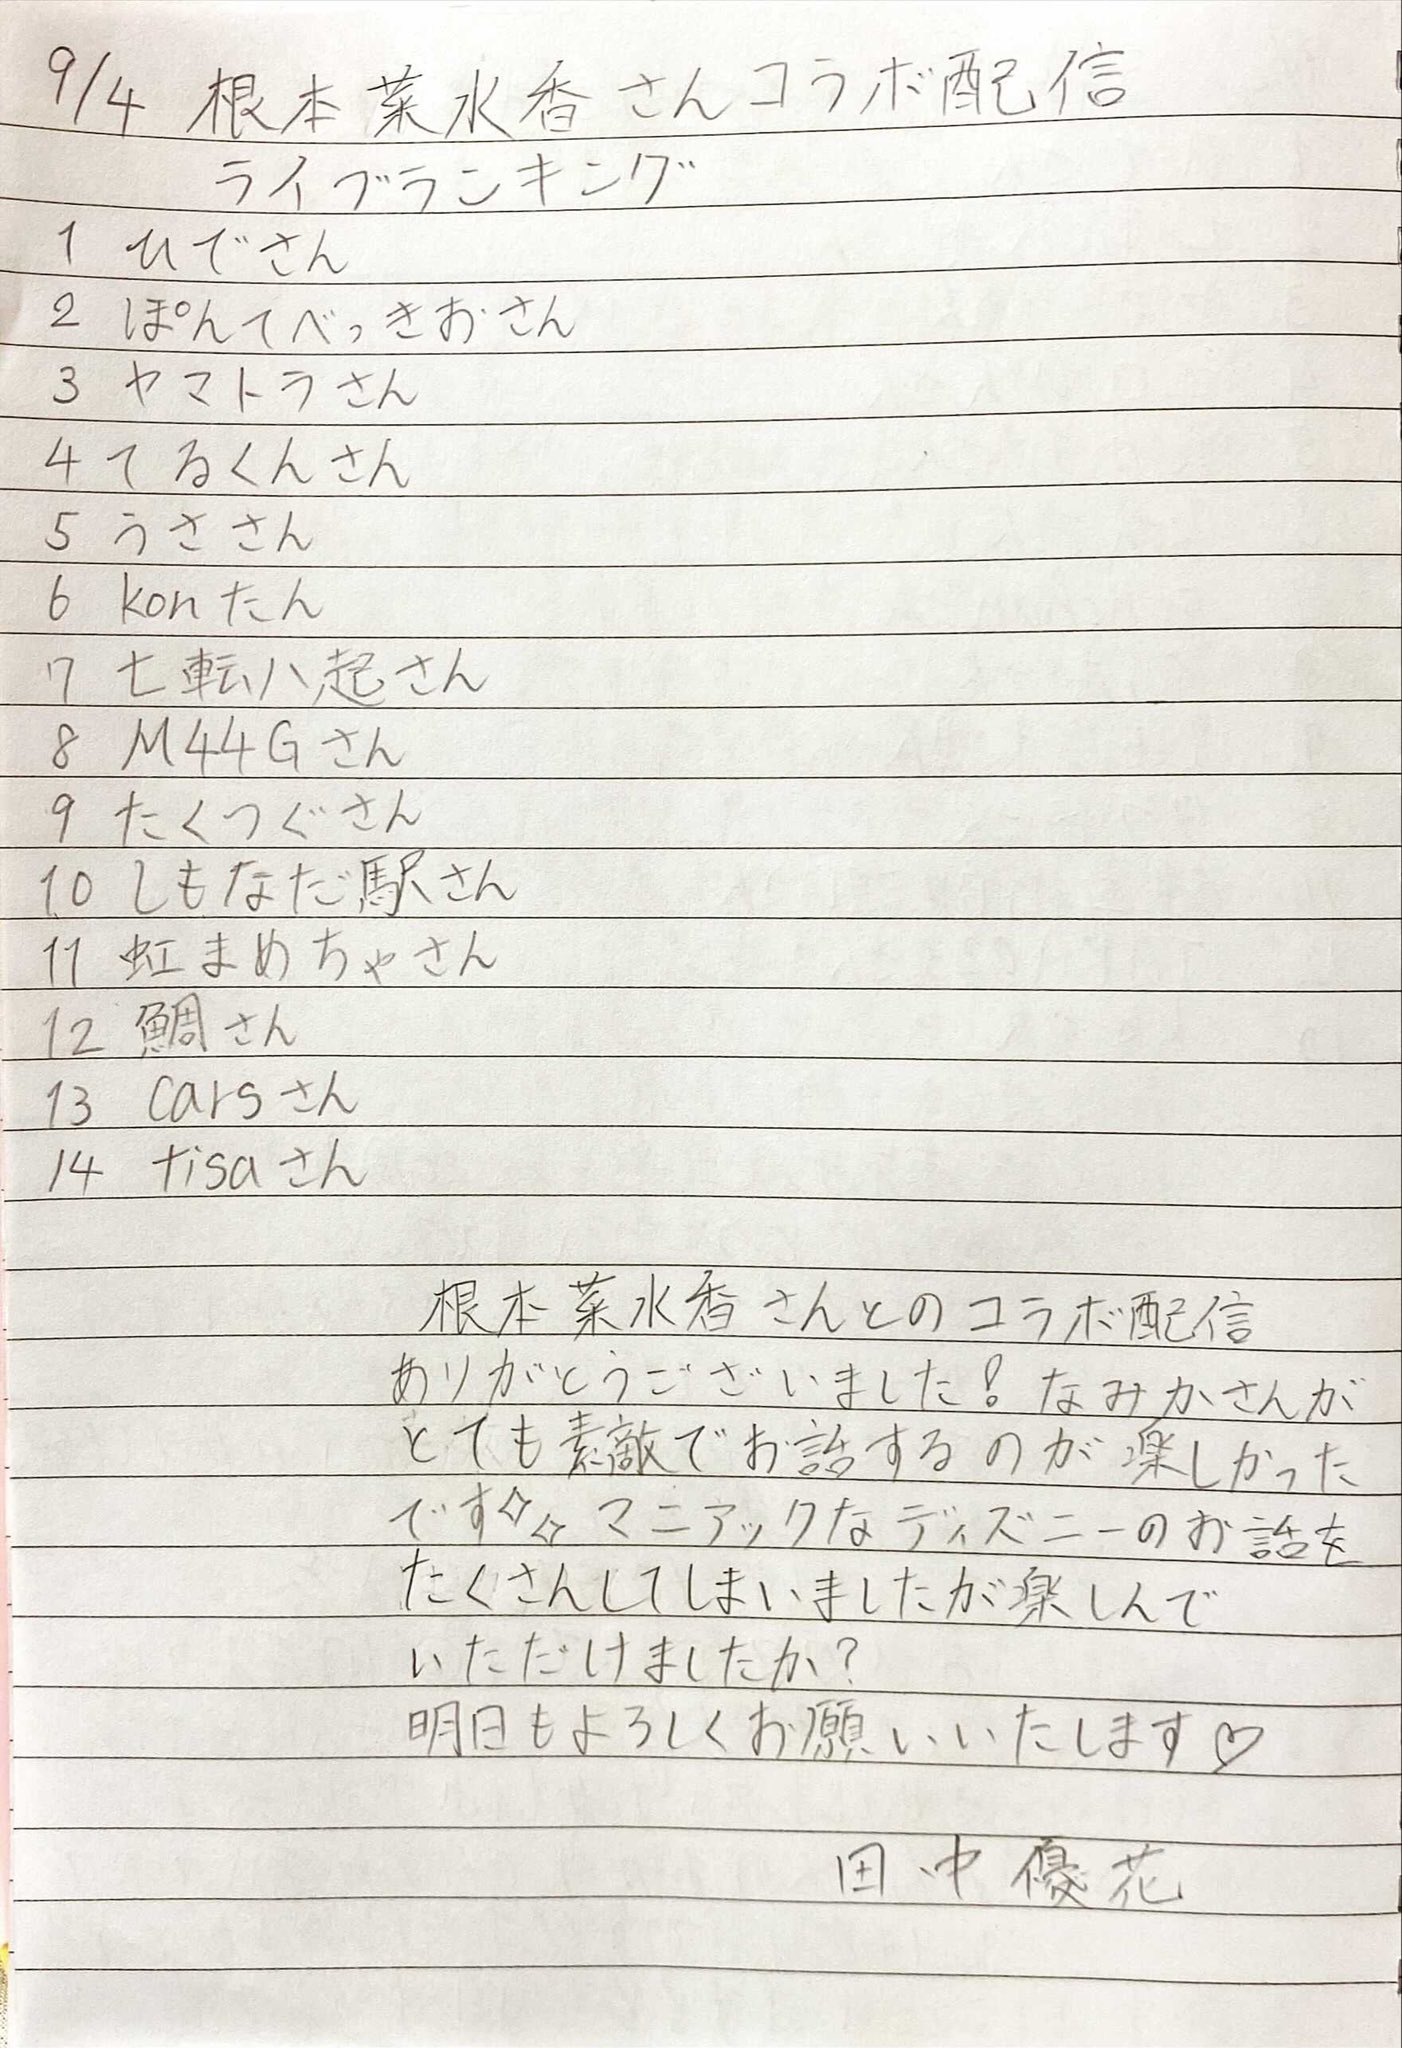 9/4 根本菜水香さんコラボ配信
ライブランキング
1 ひでさん
2 ぽんてべっきおさん
3 ヤマトラさん
4 てるくんさん
5 うささん
6 konたん
7 七転八起さん
8 M44Gさん
9 たくつぐさん
10 しもなだ駅さん
11 虹まめちゃさん
12 鯛さん
13 carsさん
14 tisaさん
根本菜水香さんとのコラボ配信
ありがとうございました! なみかさんが
とても素敵でお話するのが楽しかった
です✧✧ マニアックなディズニーのお話を
たくさんしてしまいましたが楽しんで
いただけましたか?
明日もよろしくお願いいたします♡
田中優花